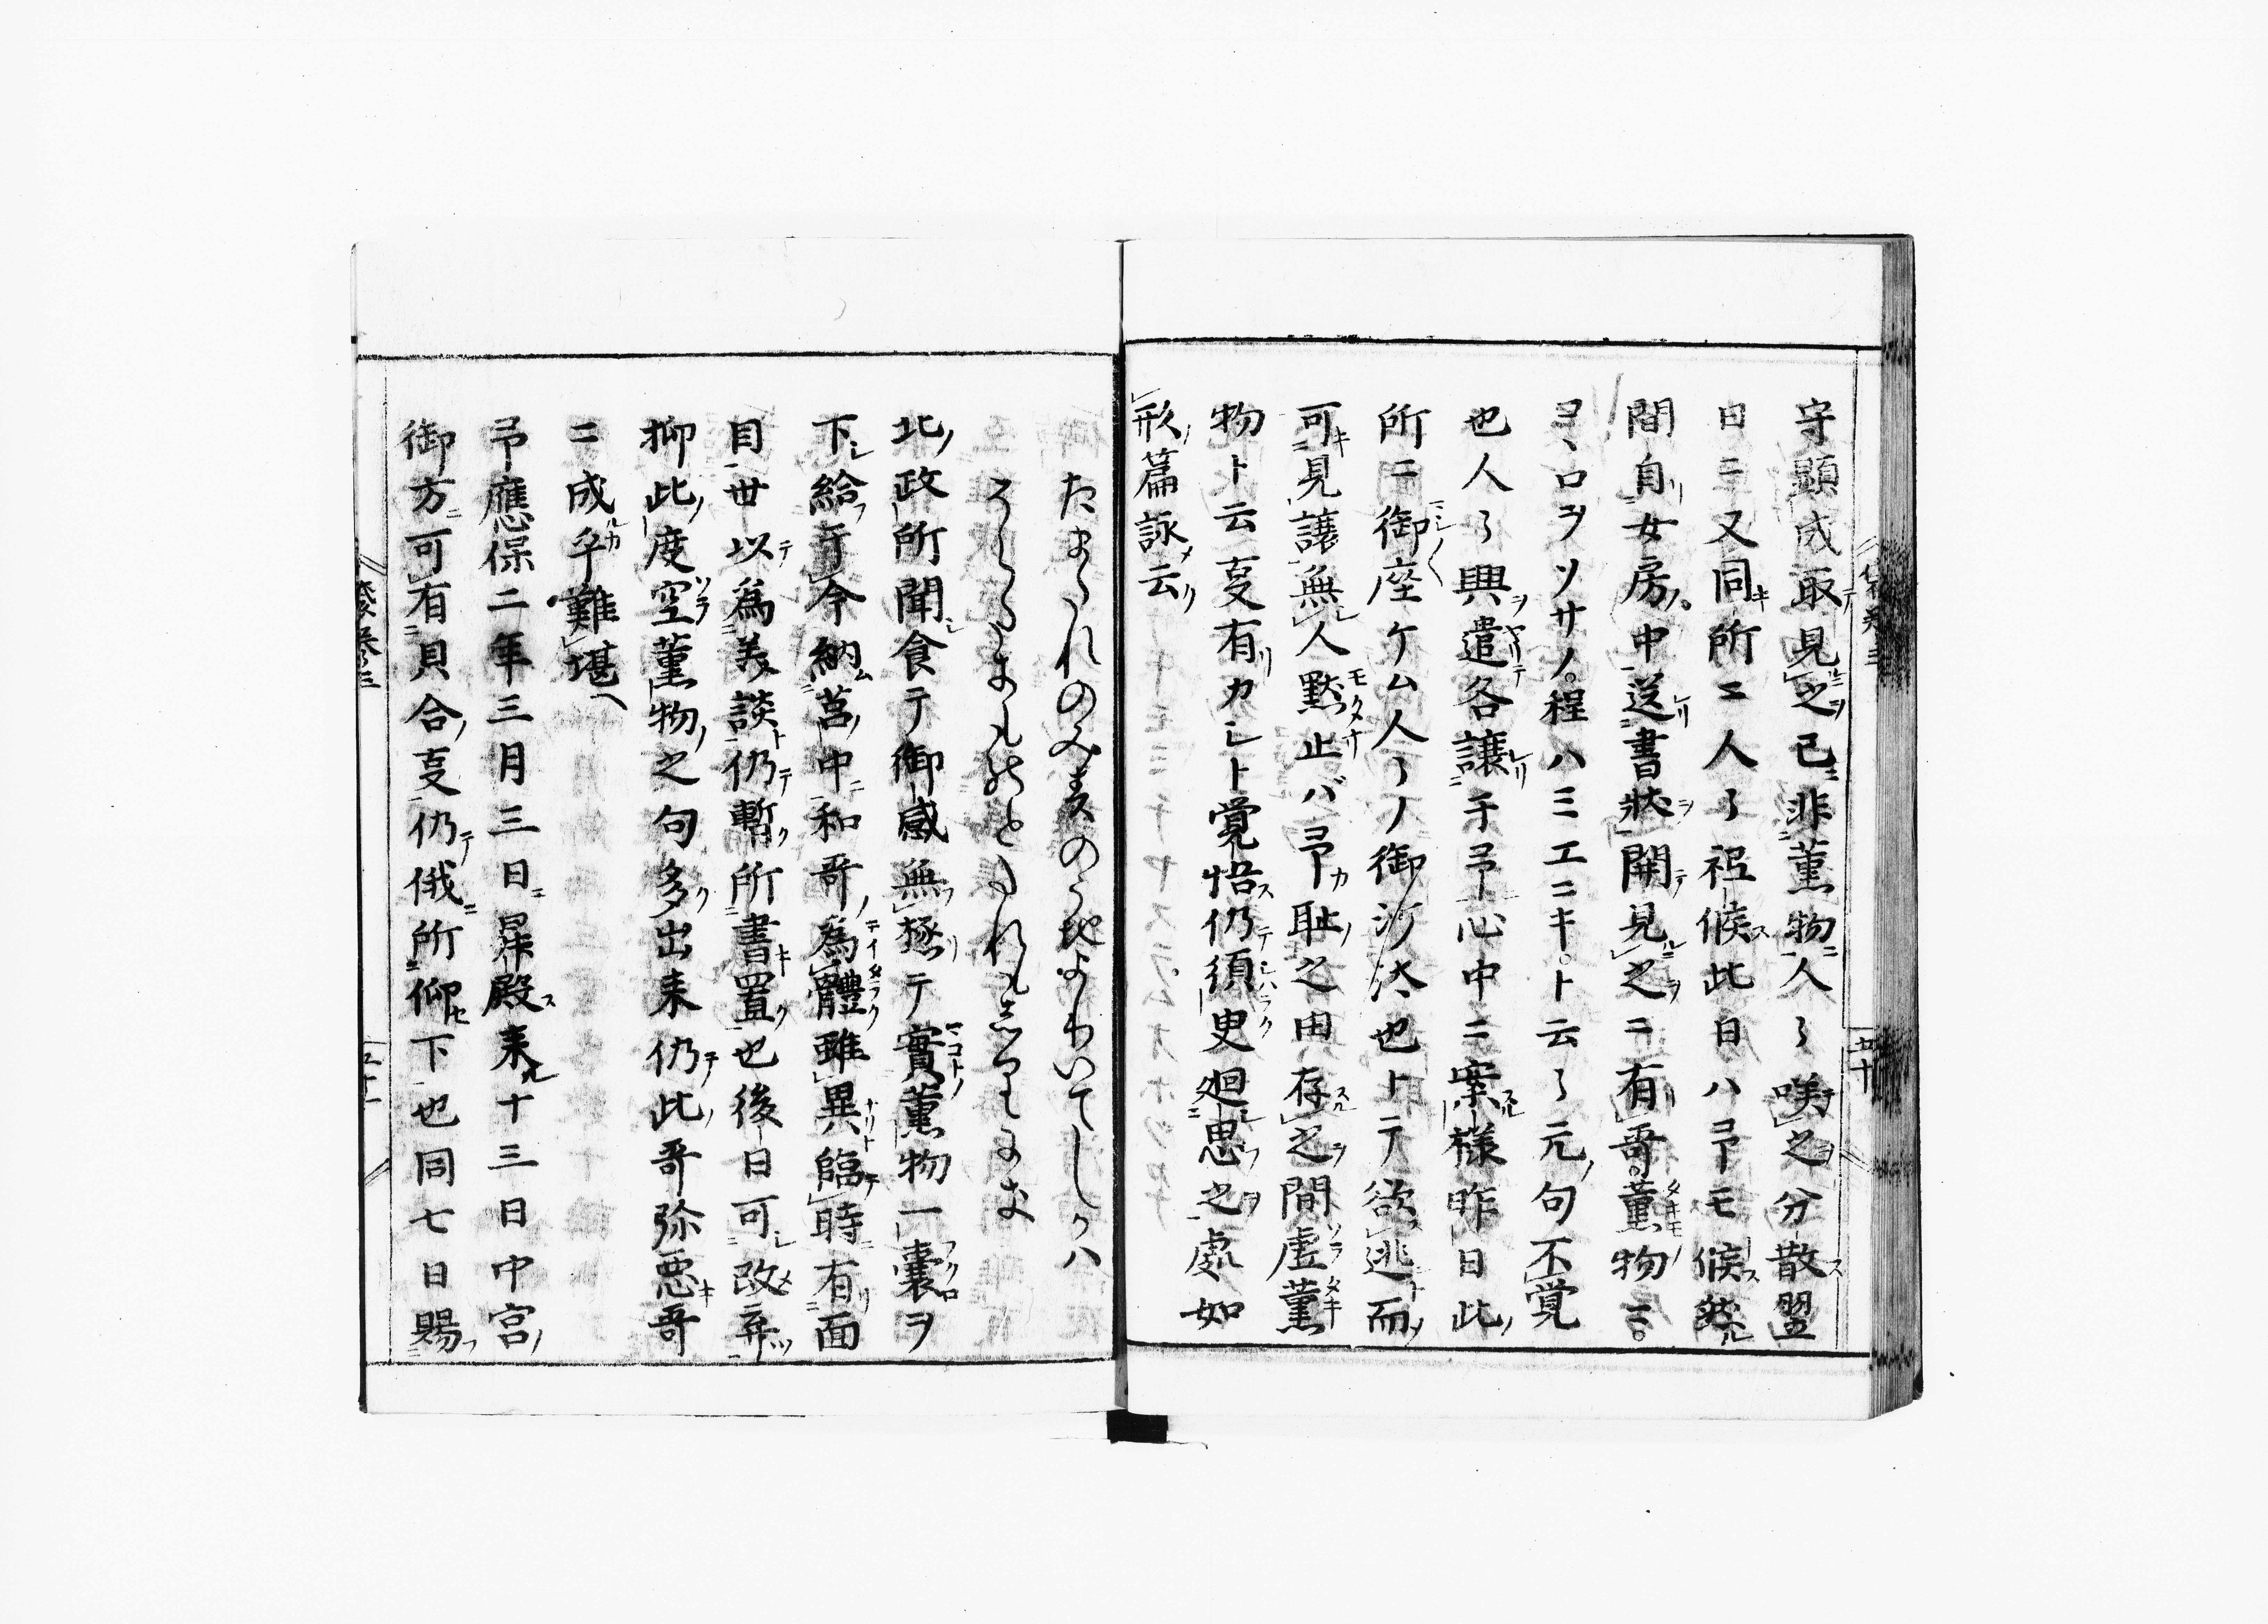 守顕成取見之已非薫物人々咲之分散翌
日ニ又同所ニ人々祗候此日ハ予モ候然
間自女房中送書状開見之ニ有哥薫物ニ
コヽロヲソサノ程ハミエニキト云々元句不覚
也人々興遣各譲于予心中ニ案様昨日此
所ニ御座ケム人々ノ御沙汰也トテ欲逃而
可見譲無人黙止バ予耻之由存之間虚薫
物ト云叓有カシト覚悟仍須臾廻思之處如
形篇詠云
たまたれのみすのうちよりいてしかハ
そらたきものとたれもしりにき
北政所聞食テ御感無極テ實薫物一嚢ヲ
下給于今納莒中和哥為體雖異臨時有面
目世以為美談仍暫所書置也後日可改弃
抑此度空薫物之句多出来仍此哥弥悪哥
ニ成乎難堪
予應保二年三月三日昇殿来十三日中宮
御方可有貝合叓仍俄所仰下也同七日賜